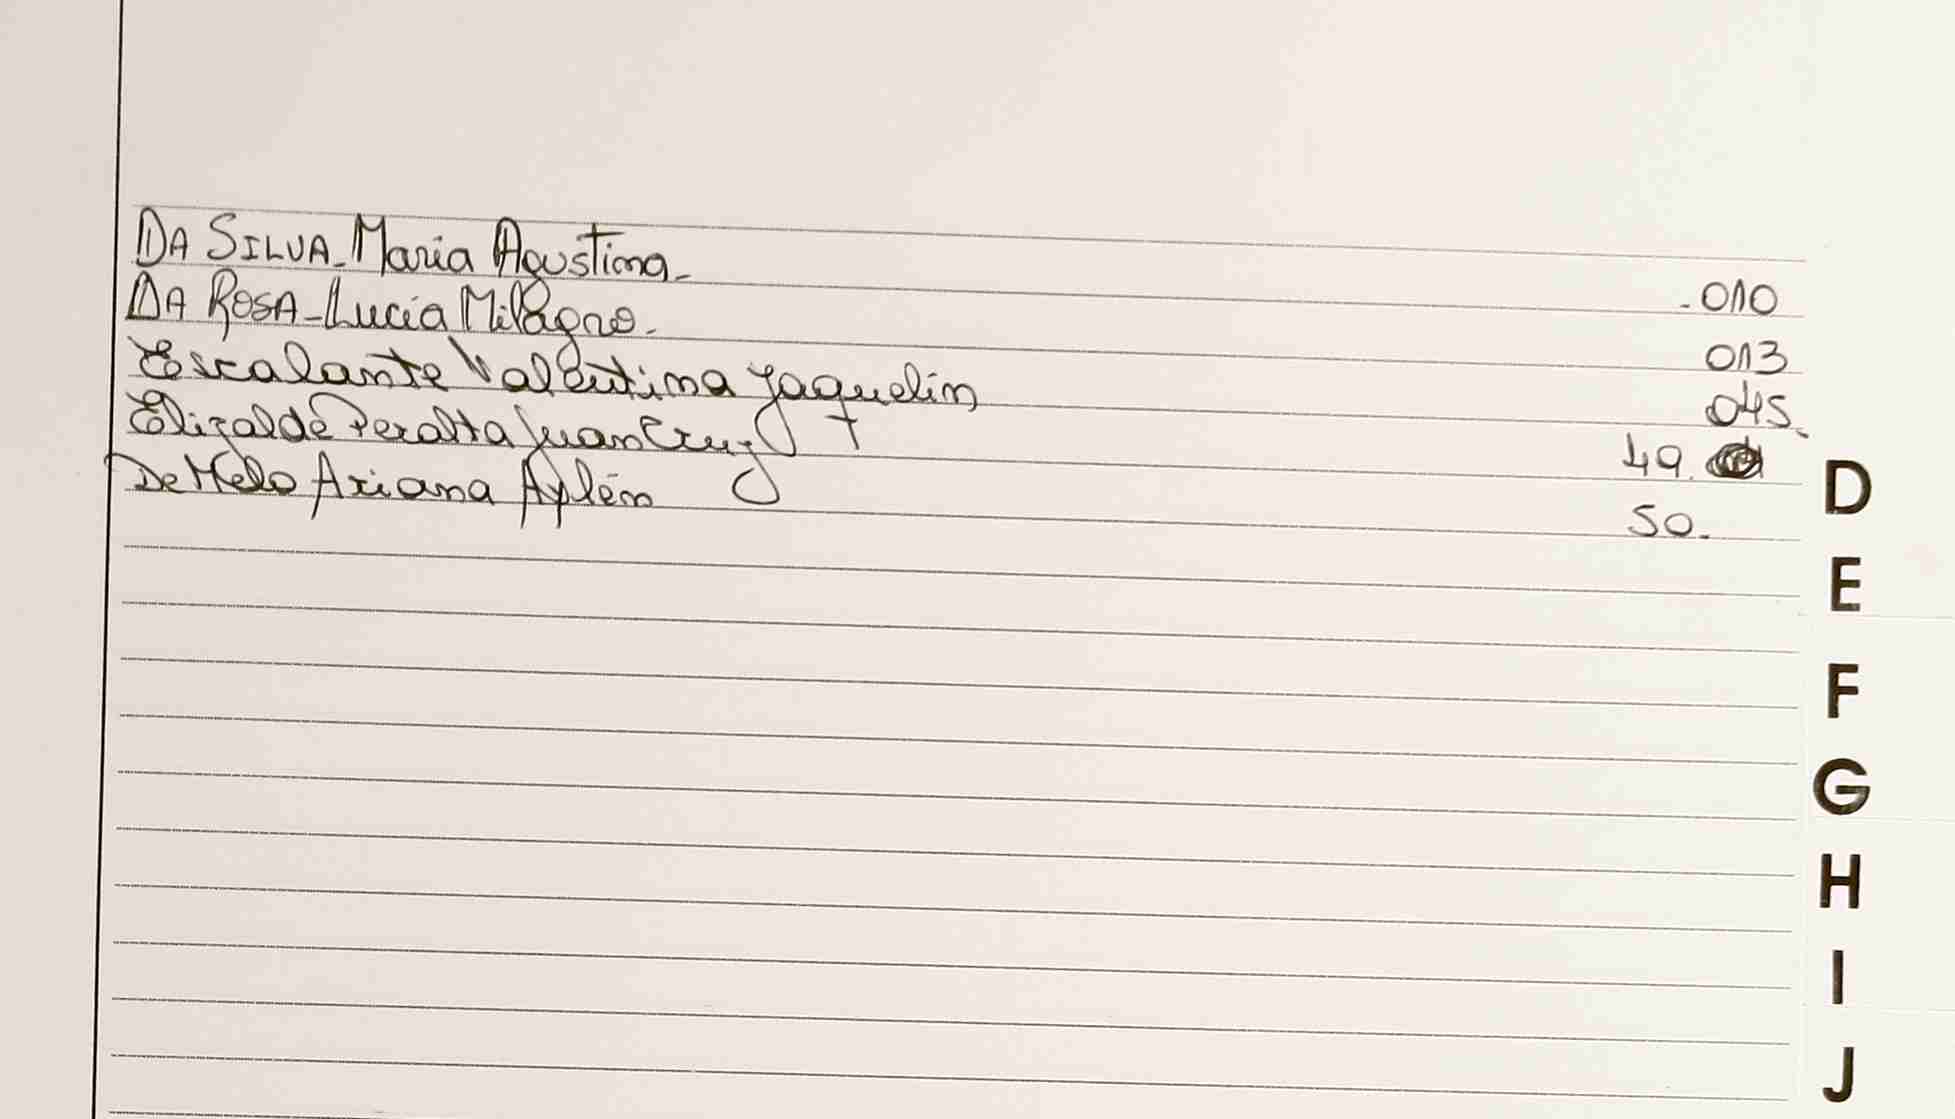 DA SILVA - Maria Agustina - . 010
DA ROSA - Lucia Milagro - 013
Escalante Valentina Jaquelin 045.
Elizalde Peralta Juan Cruz 49.
De Melo Ariana Aylén 50.
D
E
F
G
H
I
J